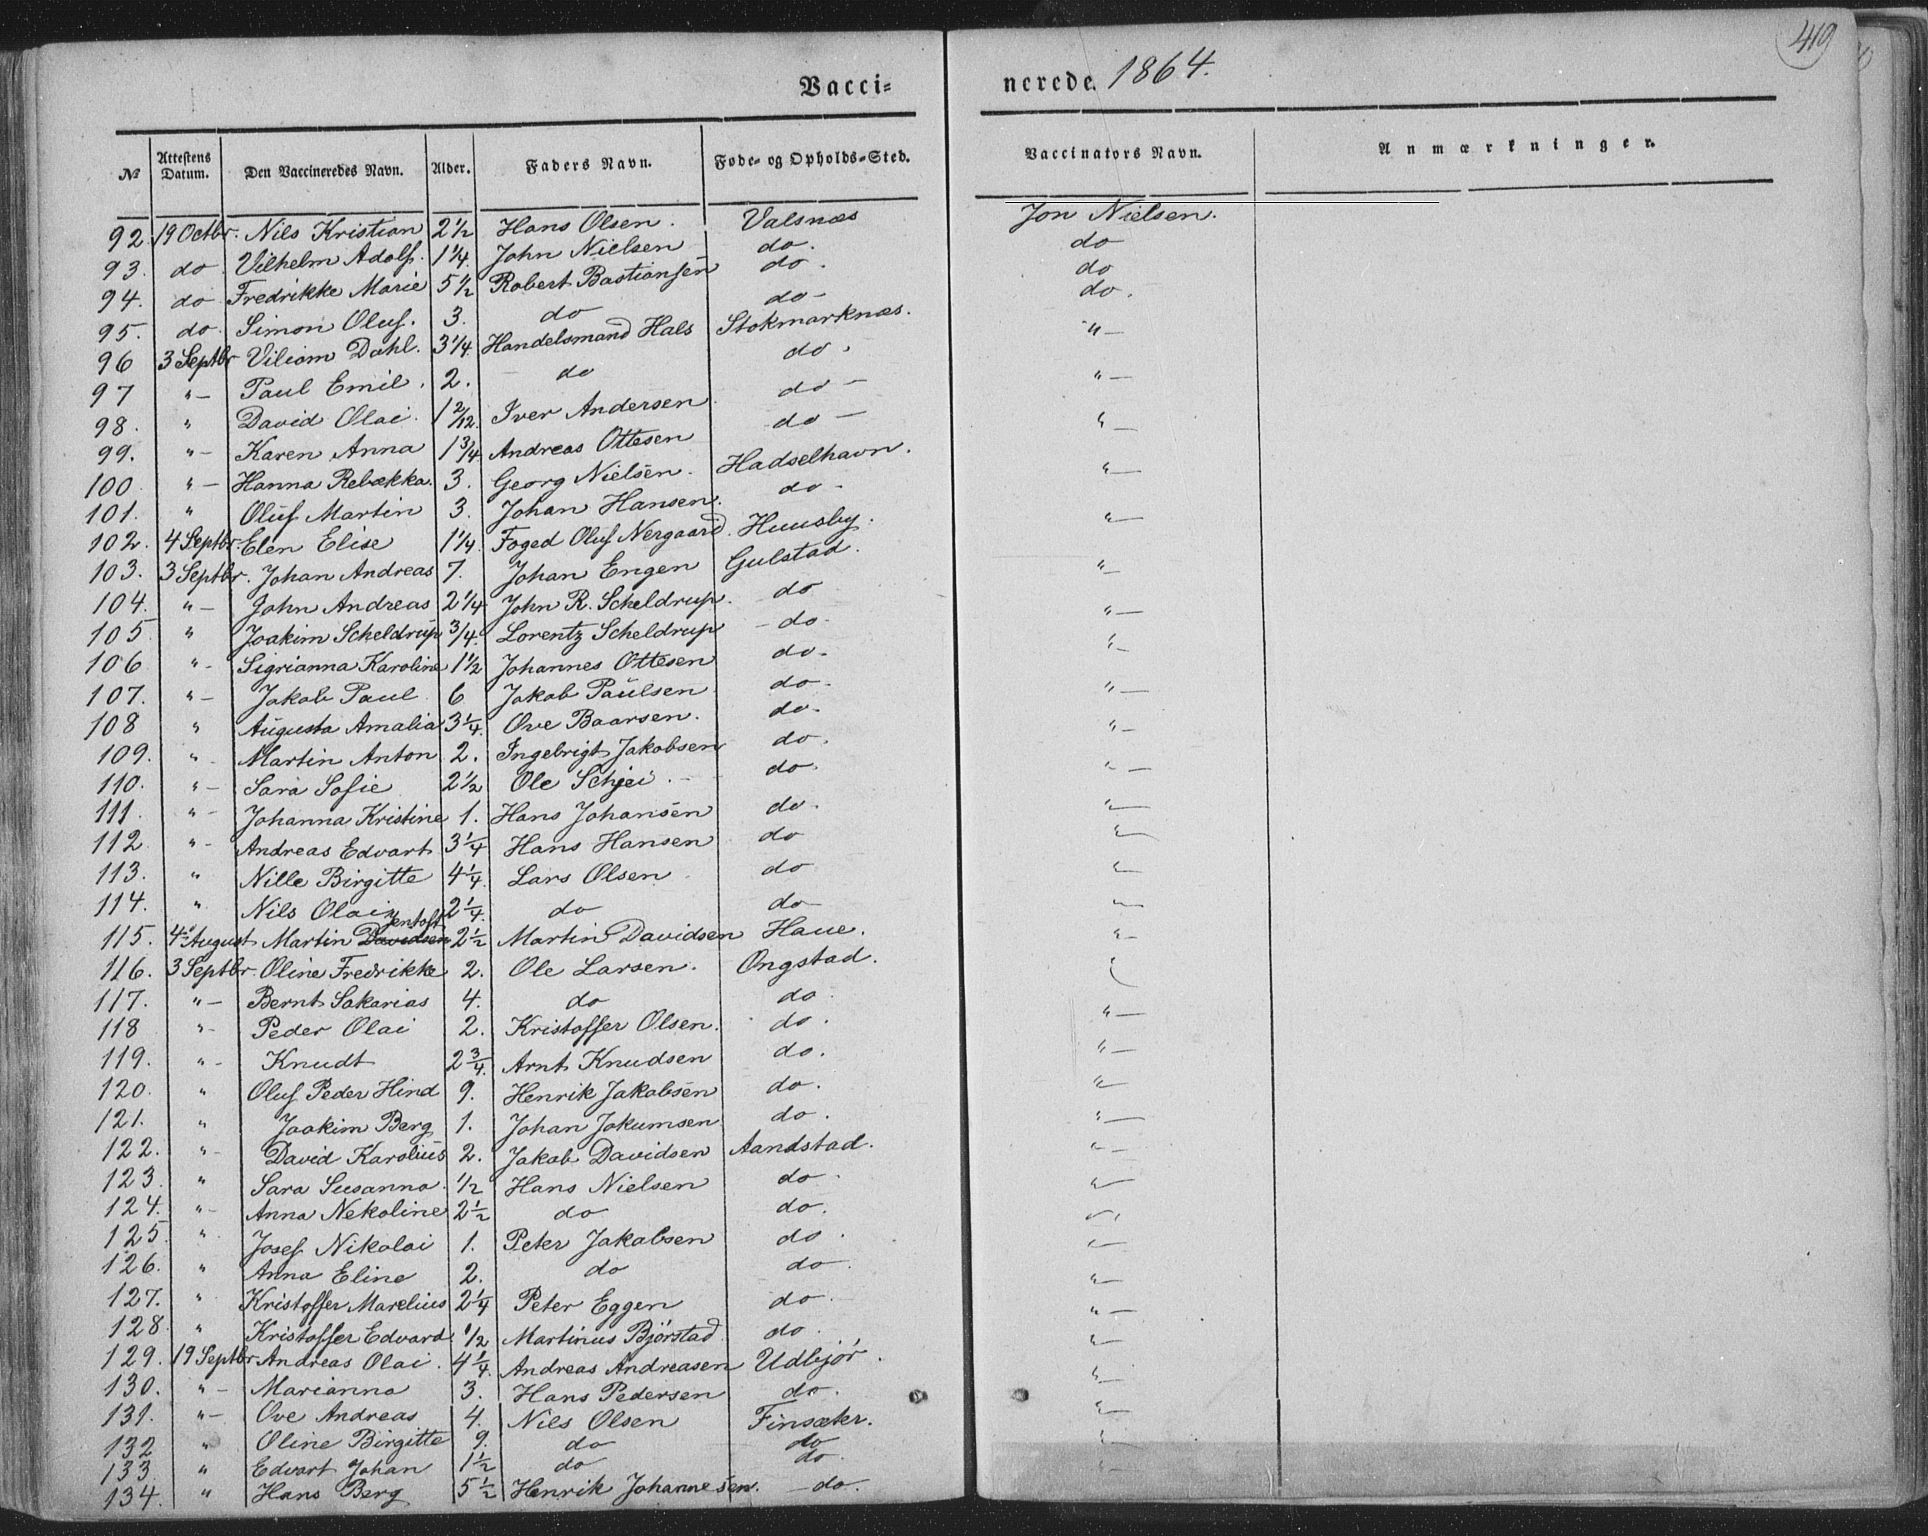 419
Vacci= nerede. 1864.
No Attestens Datum. Den Vaccineredes Navn. Alder. Faders Navn. Føde- og Opholds-Sted. Vaccinators Navn. Anmærkninger.
92. 19 Octbr. Nils Kristian 2 1/2 Hans Olsen. Valsnæs Jon Nielsen.
93. do Vilhelm Adolf. 1 1/4. John Nielsen do. do
94. do Fredrikke Marie 5 1/2 Robert Bastiansen do. do
95. do. Simon Oluf. 3. do do - do.
96 3 Septbr Viliam Dahl. 3 1/4. Handelsmand Hals Stokmarknæs. " —
97 " — Paul Emil. 2. do do. " —
98. " David Olai. 1 2/12. Iver Andersen do — " —
99. " — Karen Anna 1 3/4 Andreas Ottesen do — " —
100 " — Hanna Rebækka. 3. Georg Nielsen. Hadselhavn. " —
101. " Oluf Martin 3. Johan Hansen. do - " —
102. 4 Septbr. Elen Elise 1 1/4. Foged Oluf Nergaard. Huusby. " —
103. 3 Septbr. Johan Andreas 7. Johan Engen Gulstad. " —
104. " — John Andreas 2 1/4 John R. Scheldrup. do " —
105 " Joakim Scheldrup 3/4. Lorentz Scheldrup - do - " —
106 " - Sigrianna Karoline 1 1/2 Johannes Ottesen do. " —
107. " — Jakob Paul 6 Jakob Paulsen do - " —
108 " Augusta Amalia 3 1/4 Ove Baarsen. do - " —
109. " - Martin Anton 2. Ingebrigt Jakobsen do. " —
110. " — Sara Sofie 2 1/2 Ole Schjei. - do. " —
111. " - Johanna Kristine 1. Hans Johansen do. " —
112 " - Andreas Edvart 3 1/4 Hans Hansen do " —
113. " Nille Birgitte 4 1/4. Lars Olsen do " —
114. " Nils Olai 2 1/4. do do — " —
115. 4 August Martin Davidsen Jentoft 2 1/2 Martin Davidsen Haue. " —
116. 3 Septbr. Oline Fredrikke 2. Ole Larsen. Ongstad. "
117. " — Bernt Sakarias 4. do do " —
118 " - Peder Olai 2. Kristoffer Olsen. do. " —
119. " - Knudt 2 3/4. Arnt Knudsen do. " —
120. " Oluf Peder Hind 9. Henrik Jakobsen do. " —
121. " Joakim Berg 1. Johan Jokumsen do. " —
122. " - David Karolius 2. Jakob Davidsen Aandstad. " —
123. " Sara Susanna. 1/2 Hans Nielsen do. " —
124. " - Anna Nekoline 2 1/2 do do. " —
125. " Josef Nikolai 1. Peter Jakobsen do. " —
126. " Anna Eline 2. do do. " —
127. " Kristoffer Marelius 2 1/4 Peter Eggen do. " —
128. " Kristoffer Edvard 1/2 Martinus Bjørstad do. " —
129. 19 Septbr Andreas Olai. 4 1/4. Andreas Andreasen Udbjør. " —
130. " — Marianna 3. Hans Pedersen do. " —
131. " — Ove Andreas 4. Nils Olsen Finsæter. " —
132 " Oline Birgitte 9. do do " —
133 " Edvart Johan 1 1/2 do do. " —
134. " Hans Berg 5 1/2 Henrik Johannesen. - do.